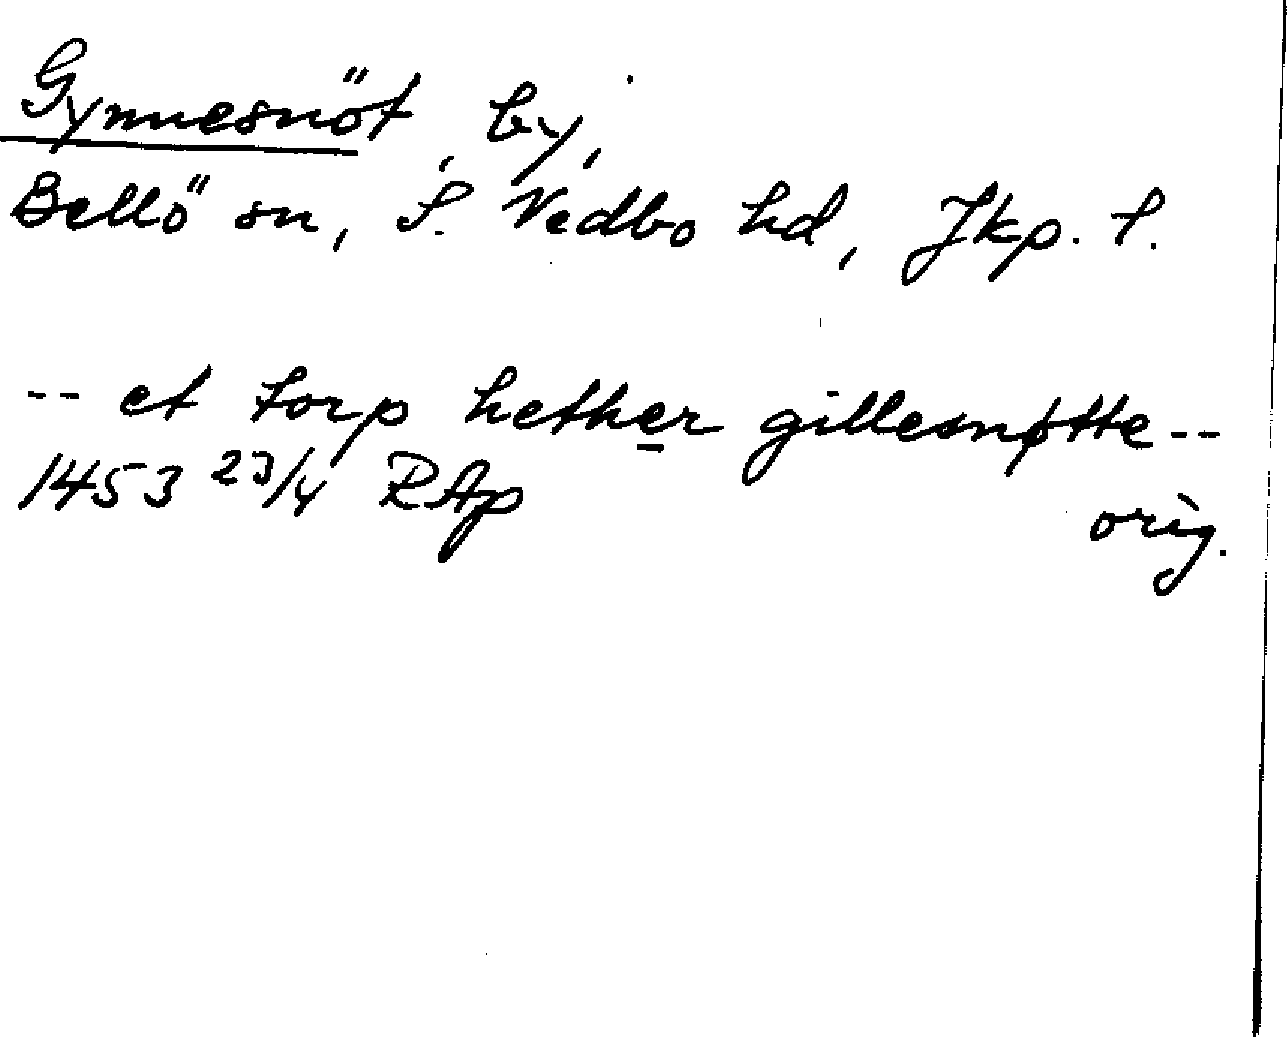 Gynnesnöt, by,
Bellö sn, S. Vedbo hd, Jkp. l.
-- et torp hether gillesnøtte --
1453 23/4 RAp
orig.